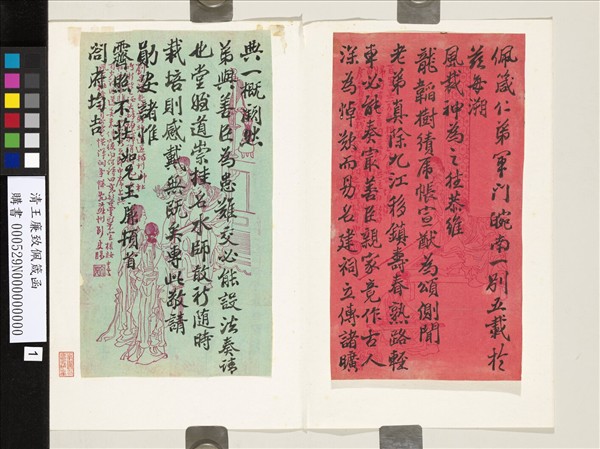 佩箴仁弟軍門皖南一別五載於
茲每溯
風裁神為之往恭維
龍韜樹績虎帳宣猷為頌側聞
老弟真除九江移鎮壽春熟路輕
車必能奏最善臣親家竟作古人
深為悼歎而易名建祠立傳諸曠
典一概闕然
弟與善臣為患難交必能設法奏請
也堂姪道崇挂名水師敬祈隨時
栽培則感戴無既矣專此敬請
勛安諸惟
靄照不莊如兄王廉頓首
閤府均吉
清王廉致佩箴函
購書 000529N000000000
1